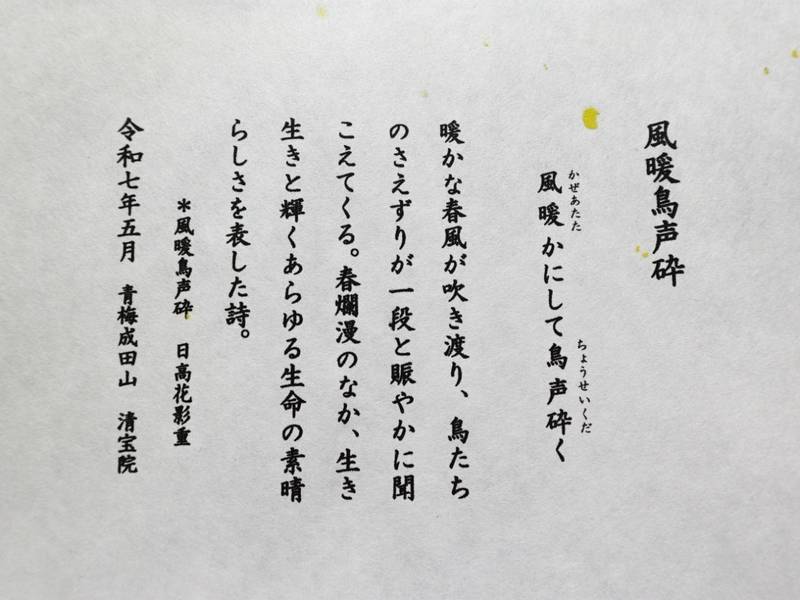 風暖鳥声砕
風暖かにして鳥声砕く
かぜあたた
ちょうせいくだ
暖かな春風が吹き渡り、鳥たち
のさえずりが一段と賑やかに聞
こえてくる。春爛漫のなか、生き
生きと輝くあらゆる生命の素晴
らしさを表した詩。
＊風暖鳥声砕　日高花影重
令和七年五月　青梅成田山　清宝院